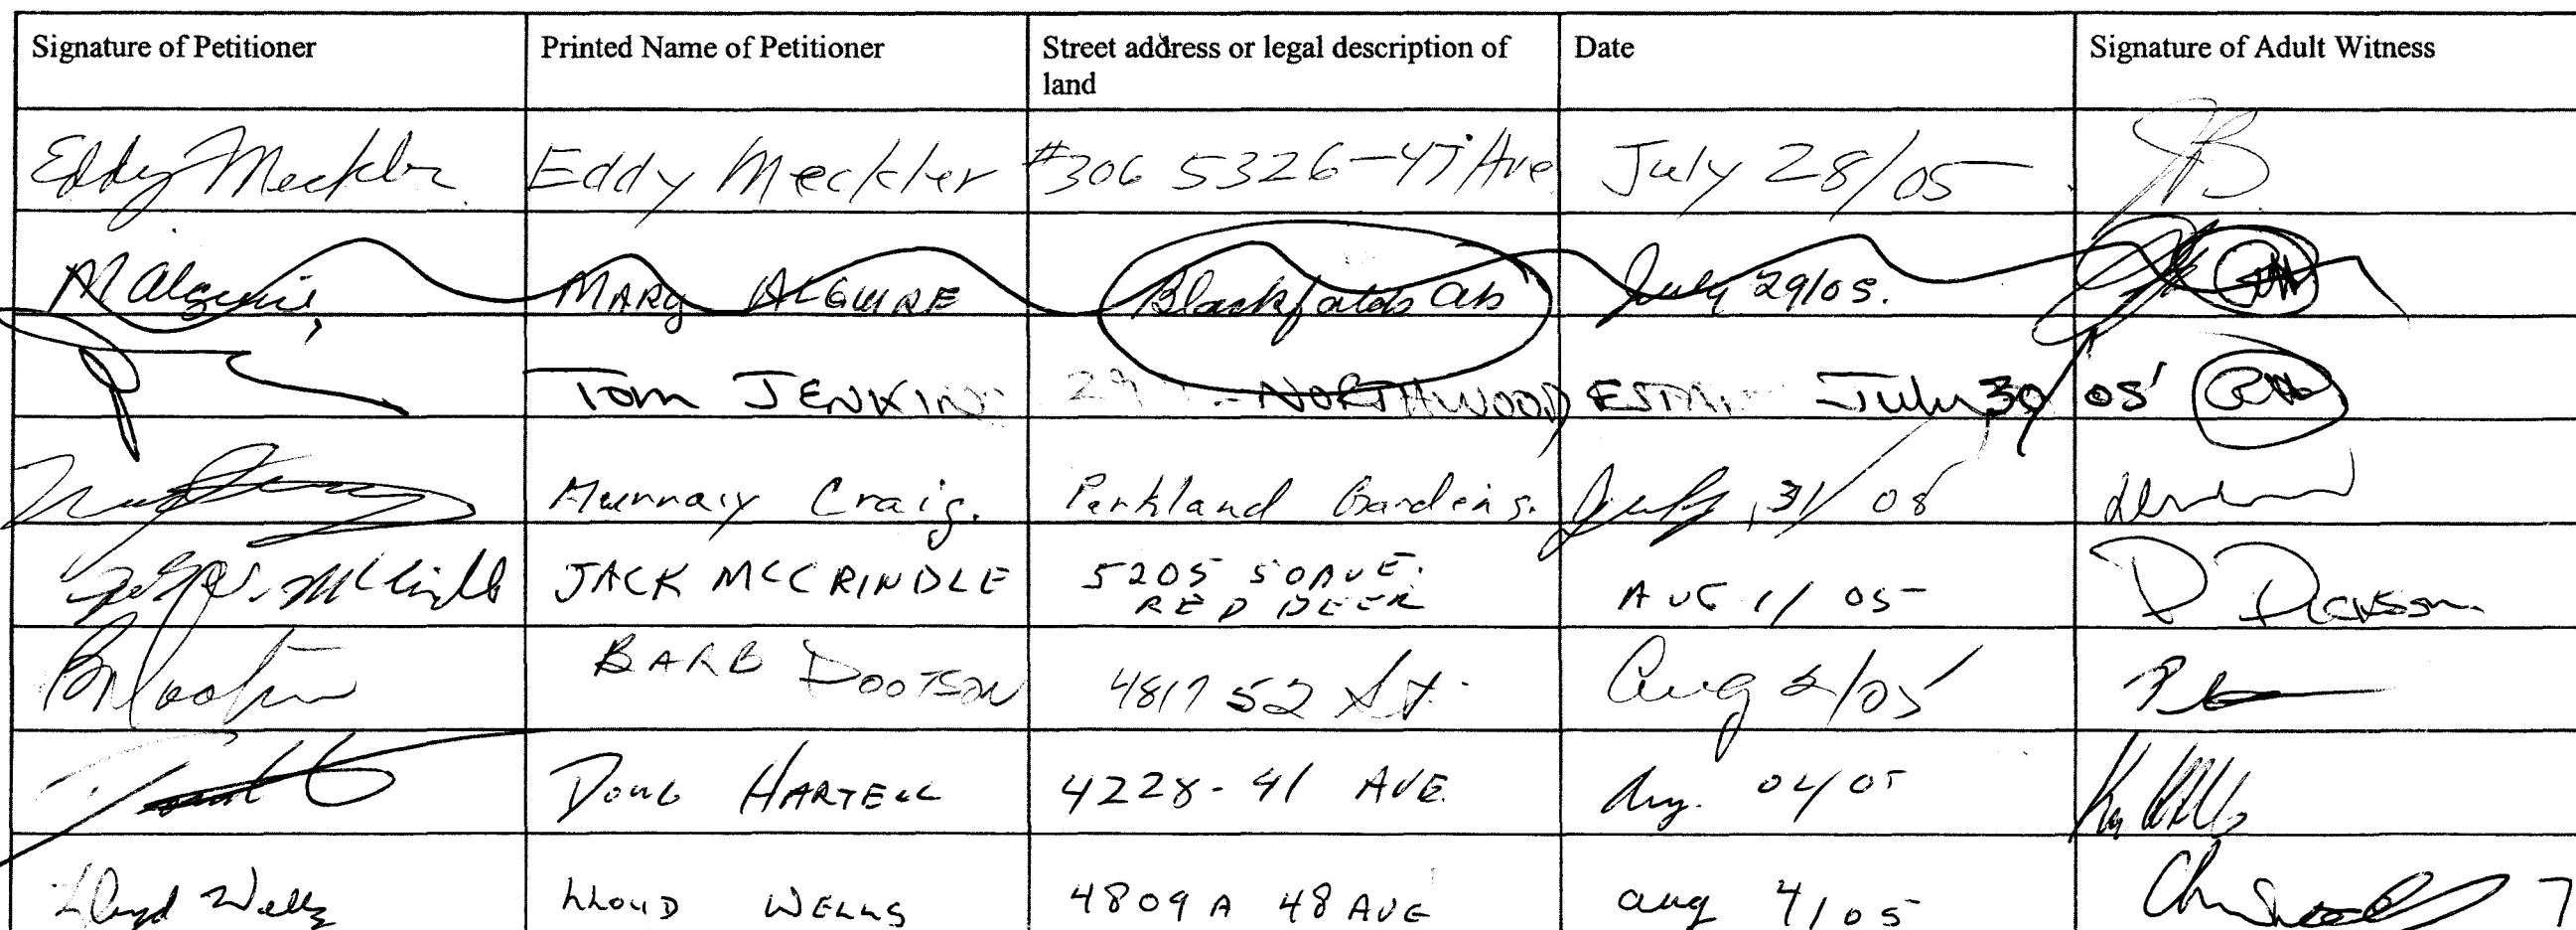 Signature of Petitioner Printed Name of Petitioner Street address or legal description of Date Signature of Adult Witness
land
Eddy Meckler Eddy Meckler #306 5326-47 Ave July 28/05
M Alguire, MARY ALGUIRE Blackfalds Ab July 29/05.
Tom JENKINS 29 NORTHWOOD ESTA July 30 05'
Murray Craig. Parkland Gardens. July, 31/05
McCrindle JACK MCCRINDLE 5205 50 AVE. AUG 1/05 D Dickson
RED DEER
B Dootson BARB DOOTSON 4817 52 St. Aug 2/05
DOUG HARTELL 4228-41 AVE. Aug. 04/05
Lloyd Wells LLOYD WELLS 4809 A 48 AVE aug 4/05 7